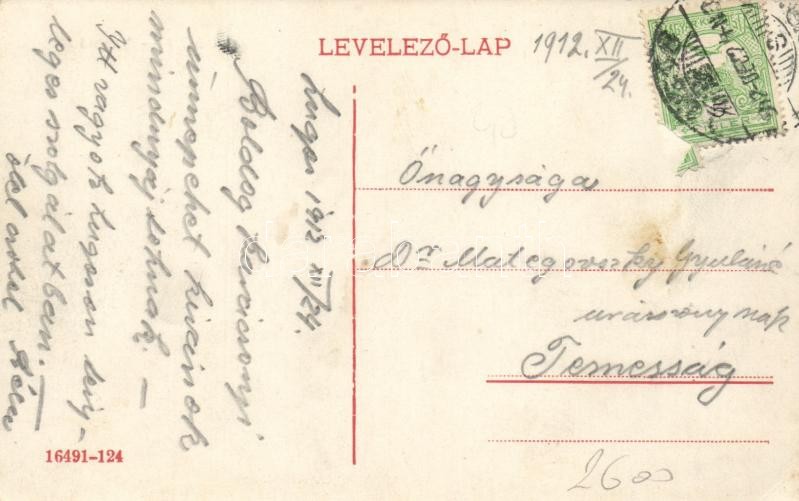 LEVELEZŐ-LAP
1912. XII/24.
Lugos 1912 XII/24.
Boldog karácsonyi
ünnepeket kívánok
mindnyájatoknak. —
Itt vagyok Lugoson ény-
leges szolgálatban. —
ölel
Őnagysága
Dr Mategovszky Gyuláné
úrasszonynak
Temesság
16491-124
2600